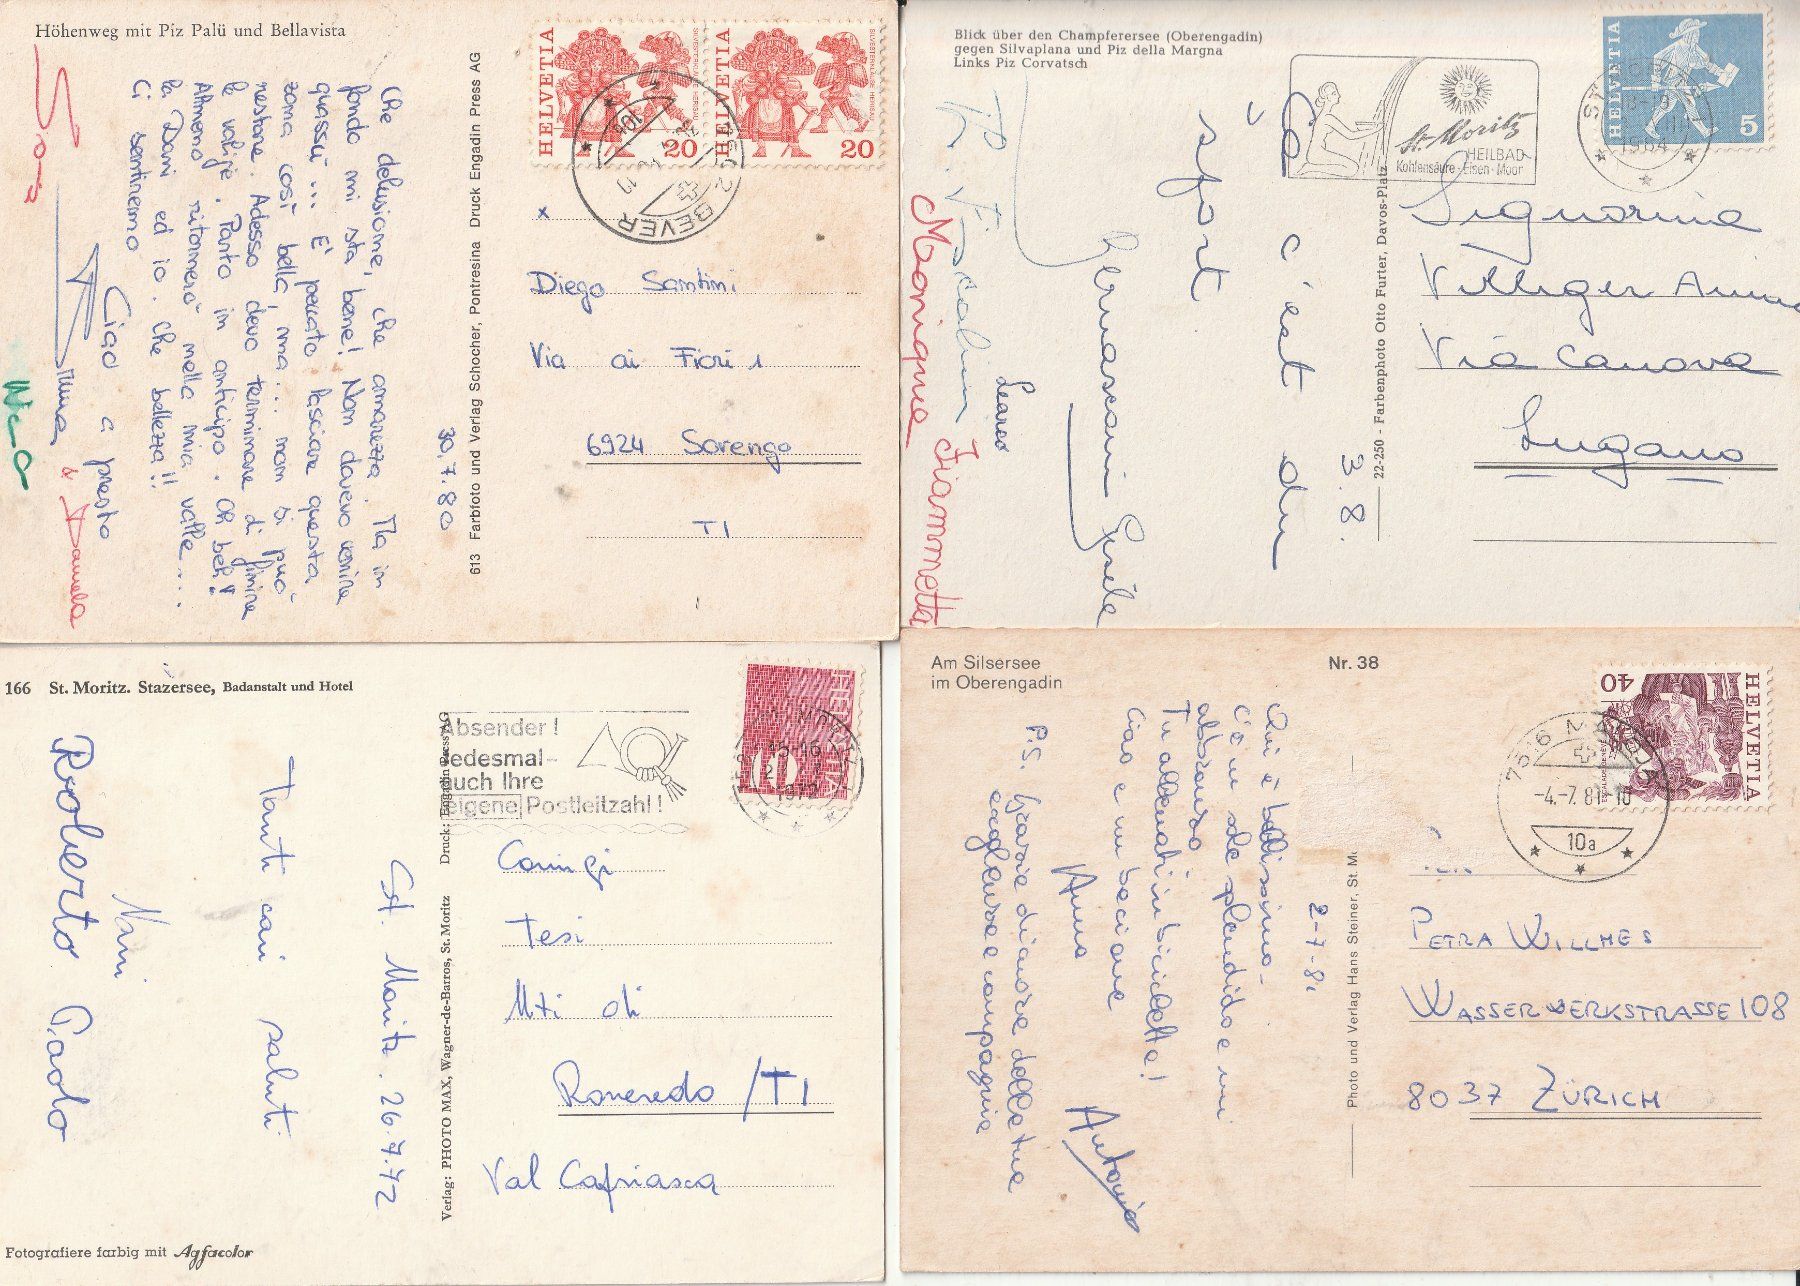 Höhenweg mit Piz Palü und Bellavista
HELVETIA
20
SILVESTERKLÄUSE HERISAU
HELVETIA
20
SILVESTERKLÄUSE HERISAU
BEVER
Che delusione, che amarezza. Ma in
fondo mi sta bene! Non dovevo venire
quassù... È peccato lasciare questa
zona così bella, ma... non si può
restare. Adesso devo terminare di finire
le valigie. Parto in anticipo. Oh beh!
Almeno ritornerò nella mia valle...
la Dani ed io. Che bellezza!!
Ci sentiremo
Ciao a presto
& Daniela
30.7.80
613 Farbfoto und Verlag Schocher, Pontresina Druck Engadin Press AG
Diego Santini
Via ai Fiori 1
6924 Sorengo
TI
Blick über den Champferersee (Oberengadin)
gegen Silvaplana und Piz della Margna
Links Piz Corvatsch
St. Moritz
HEILBAD
Kohlensäure-Eisen-Moor
HELVETIA
5
1964
Ça c'est du
sport
Gisèle
Learco
Monique
Fiammetta
3.8.
22-250 - Farbenphoto Otto Furter, Davos-Platz
Signorina
Villiger Anna
Via Canova
Lugano
166 St. Moritz. Stazersee, Badanstalt und Hotel
Absender!
Jedesmal-
auch Ihre
eigene Postleitzahl!
HELVETIA
10
15-16
1972
St. Moritz. 26.7.72
Tanti cari saluti
Nini
Roberto Paolo
Verlag: PHOTO MAX, Wagner-de-Barros, St. Moritz Druck: Engadin Press AG
Tesi
di
Roveredo / TI
Val Capriasca
Fotografiere farbig mit Agfacolor
Am Silsersee
im Oberengadin
Nr. 38
HELVETIA
40
7516 MALOJA
-4.-7.81-10
10a
2-7-81
Qui è bellissimo-
C'è un sole splendido e mi
abbronzo
Tu allenati in bicicletta!
Ciao e un bacione
Anna
Antonio
P.S. Grazie di cuore della tua
accoglienza e compagnia
Photo und Verlag Hans Steiner, St. M
PETRA WILLMES
WASSERWERKSTRASSE 108
8037 ZÜRICH